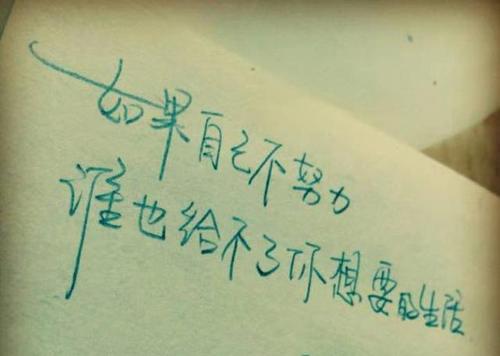 如果自己不努力
谁也给不了你想要的生活